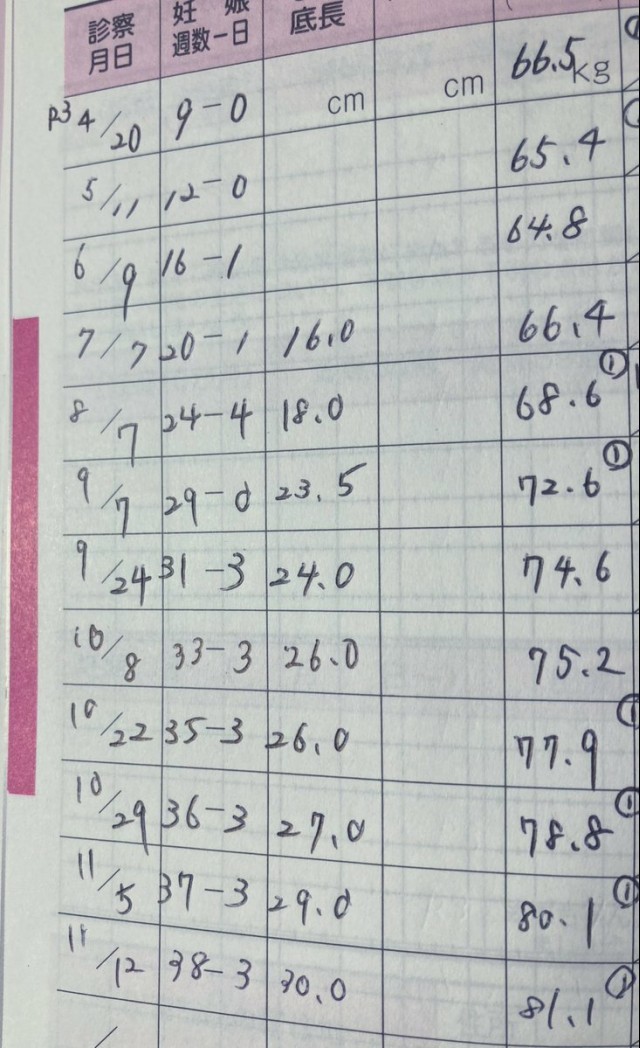 診察
月日
妊 娠
週数−日
底長
R3 4/20 9-0 cm cm 66.5kg
5/11 12-0 65.4
6/9 16-1 64.8
7/7 20-1 16.0 66.4
8/7 24-4 18.0 68.6 ①
9/7 29-0 23.5 72.6 ①
9/24 31-3 24.0 74.6
10/8 33-3 26.0 75.2
10/22 35-3 26.0 77.9 ①
10/29 36-3 27.0 78.8 ①
11/5 37-3 29.0 80.1 ①
11/12 38-3 30.0 81.1 ①